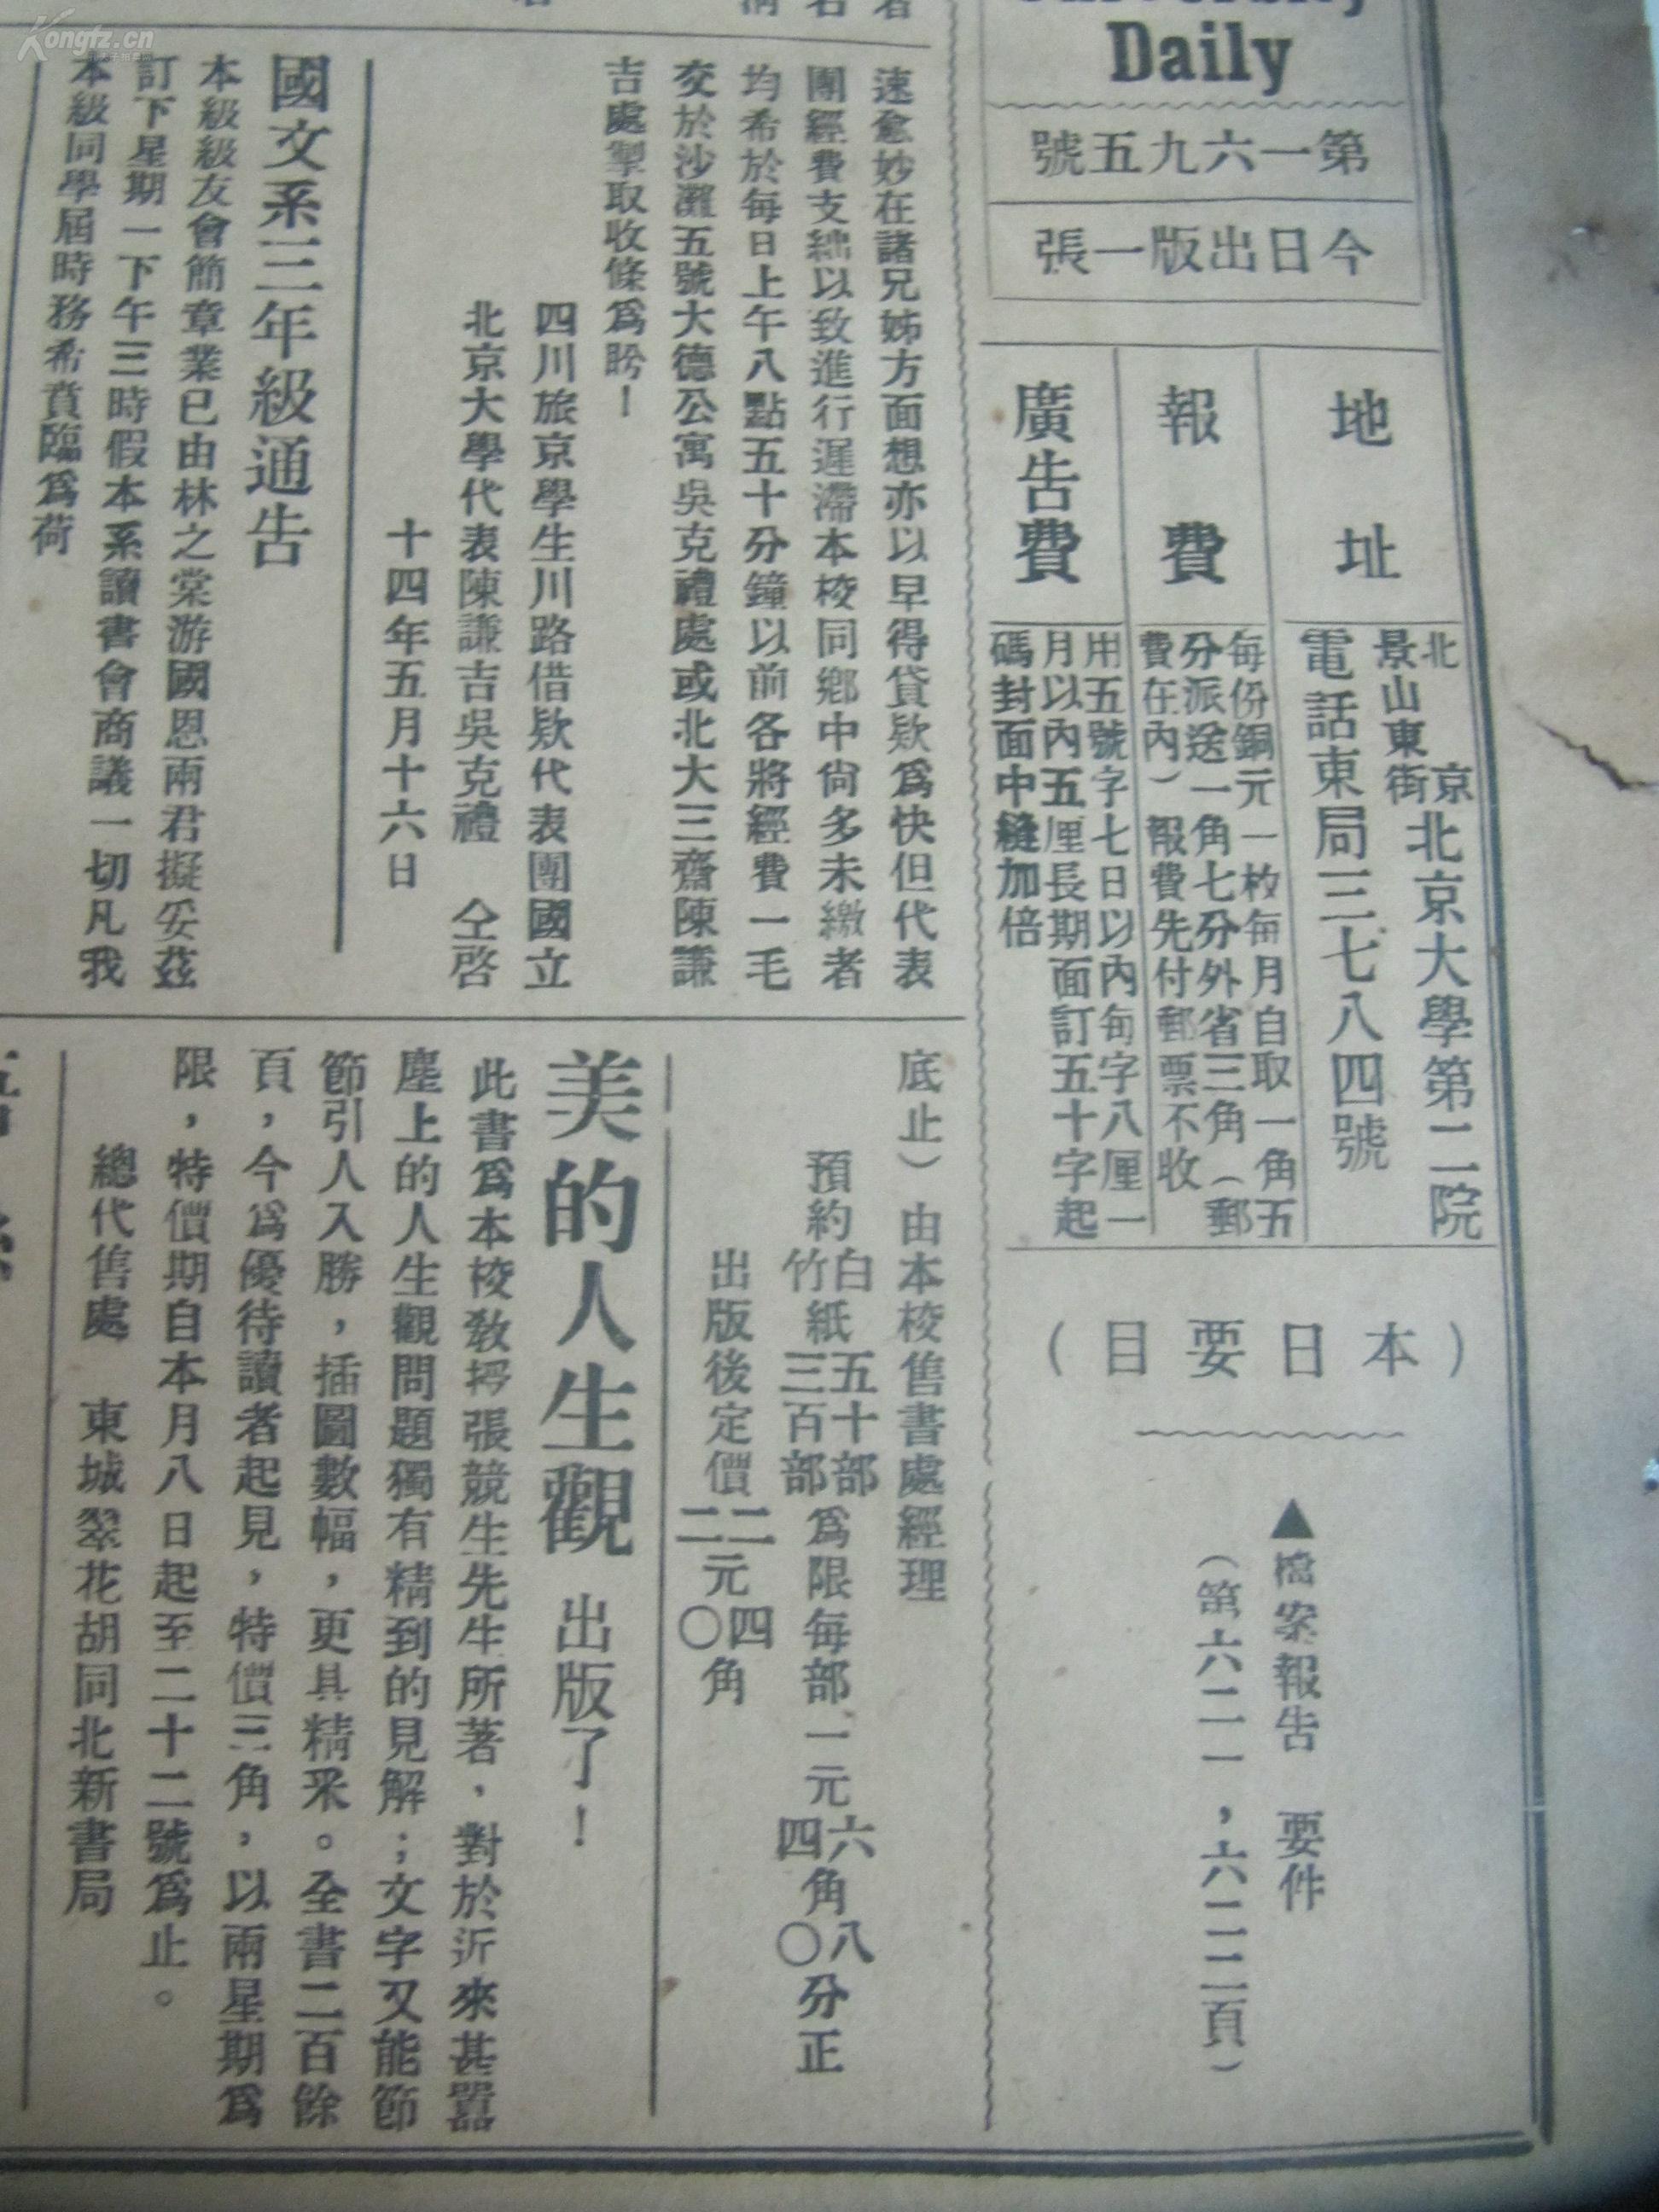 Daily
第一六九五號
今日出版一張
地址
北京
景山東街
北京大學第二院
電話東局三七八四號
報費
每份銅元一枚每月自取一角五
分派送一角七分外省三角（郵
費在內）報費先付郵票不收
廣告費
用五號字七日以內每字八厘一
月以內五厘長期面訂五十字起
碼封面中縫加倍
（本日要目）
▲檔案報告　要件
（第六二一，六二二頁）
速愈妙在諸兄姊方面想亦以早得貸欵爲快但代表
團經費支絀以致進行遲滯本校同鄉中尙多未繳者
均希於每日上午八點五十分鐘以前各將經費一毛
交於沙灘五號大德公寓吳克禮處或北大三齋陳謙
吉處掣取收條爲盼！
四川旅京學生川路借欵代表團國立
北京大學代表陳謙吉吳克禮　仝啓
十四年五月十六日
國文系三年級通告
本級級友會簡章業已由林之棠游國恩兩君擬妥茲
訂下星期一下午三時假本系讀書會商議一切凡我
本級同學屆時務希賁臨爲荷
底止）由本校售書處經理
預約白紙五十部爲限每部一元六角八分正
竹紙三百部　四角〇
出版後定價二元四角
二元〇角
美的人生觀　出版了！
此書爲本校敎授張競生先生所著，對於近來甚囂
塵上的人生觀問題獨有精到的見解；文字又能節
節引人入勝，插圖數幅，更具精采。全書二百餘
頁，今爲優待讀者起見，特價三角，以兩星期爲
限，特價期自本月八日起至二十二號爲止。
總代售處　東城翠花胡同北新書局
Kongfz.cn